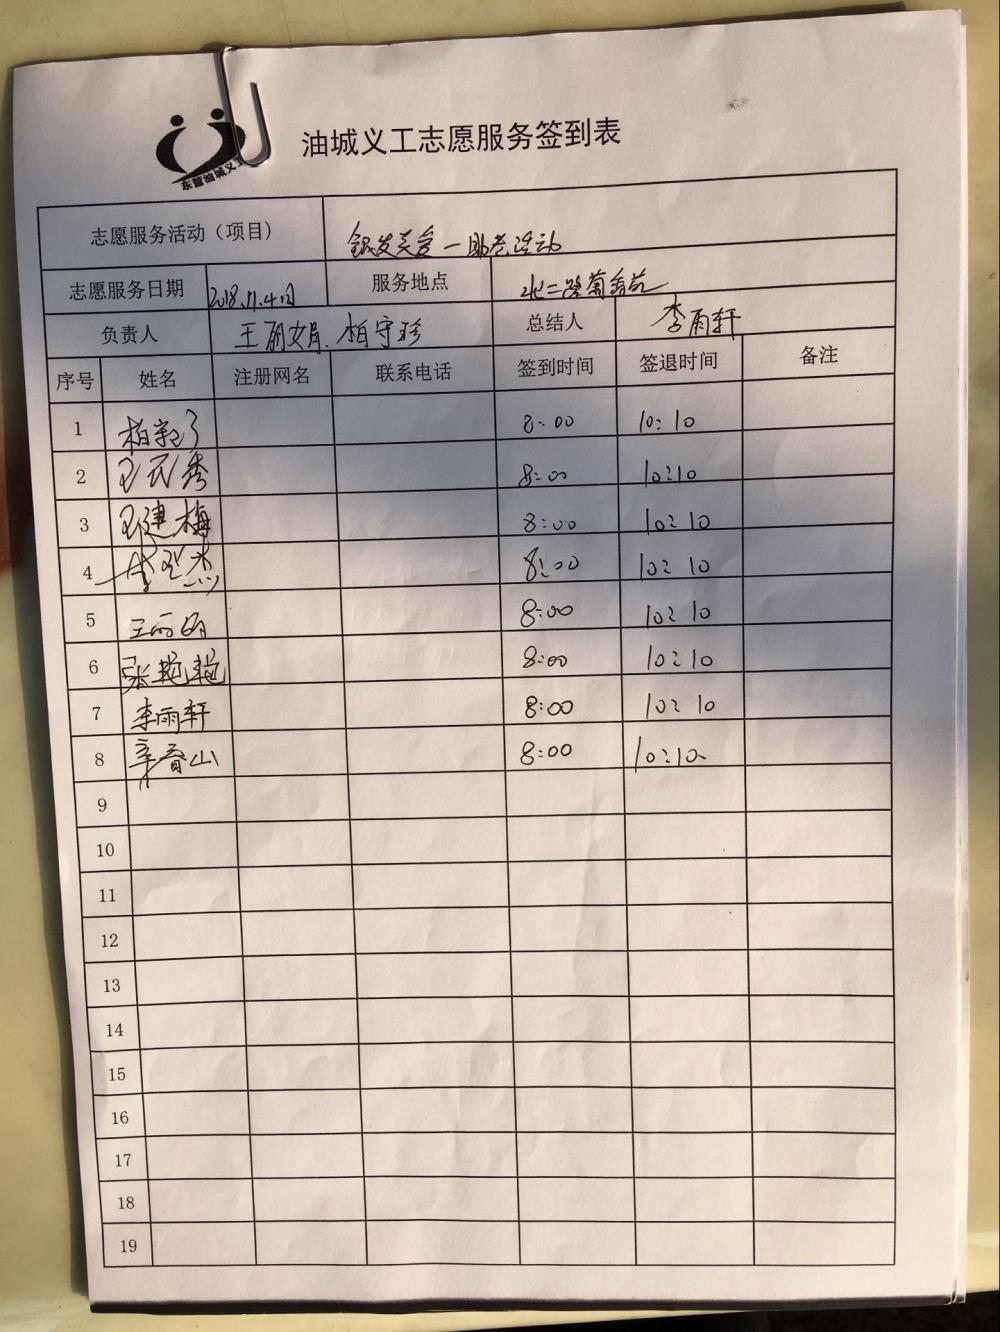 东营油城义工
油城义工志愿服务签到表
志愿服务活动（项目） 银发关爱一助老活动
志愿服务日期 2018.11.4日 服务地点 北二路葡鑫苑
负责人 王丽娟.柏守珍 总结人 李雨轩
序号 姓名 注册网名 联系电话 签到时间 签退时间 备注
1 8:00 10:10
2 王元秀 8:00 10:10
3 王建梅 8:00 10:10
4 8:00 10:10
5 王丽娟 8:00 10:10
6 张艳艳 8:00 10:10
7 李雨轩 8:00 10:10
8 辛春山 8:00 10:10
9
10
11
12
13
14
15
16
17
18
19